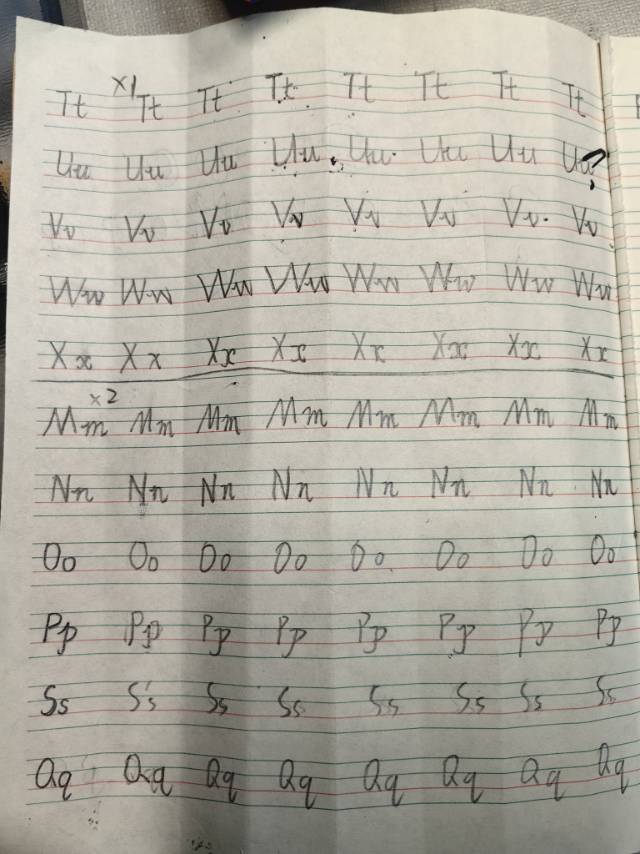 Tt x1 Tt Tt Tt Tt Tt Tt Tt
Uu Uu Uu Uu Uu Uu Uu Uu
Vv Vv Vv Vv Vv Vv Vv Vv
Ww Ww Ww Ww Ww Ww Ww Ww
Xx Xx Xx Xx Xx Xx Xx Xx
x2
Mm Mm Mm Mm Mm Mm Mm Mm
Nn Nn Nn Nn Nn Nn Nn Nn
Oo Oo Oo Oo Oo Oo Oo Oo
Pp Pp Pp Pp Pp Pp Pp Pp
Ss Ss Ss Ss Ss Ss Ss Ss
Qq Qq Qq Qq Qq Qq Qq Qq